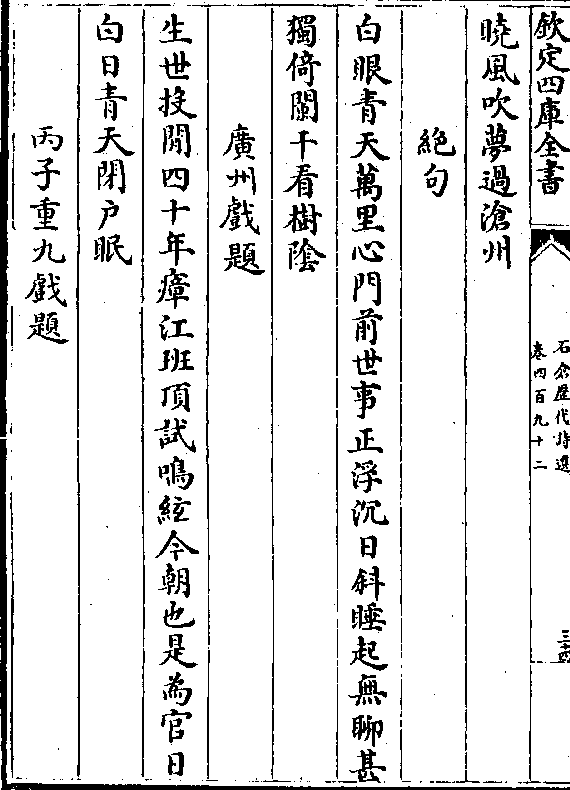 欽定四庫全書
石倉歷代詩選
卷四百九十二
三十四
曉風吹夢過滄州
絶句
白眼青天萬里心門前世事正浮沉日斜睡起無聊甚
獨倚闌干看樹陰
廣州戲題
生世投閒四十年瘴江班頂試鳴絃今朝也是為官日
白日青天閉户眠
丙子重九戲題